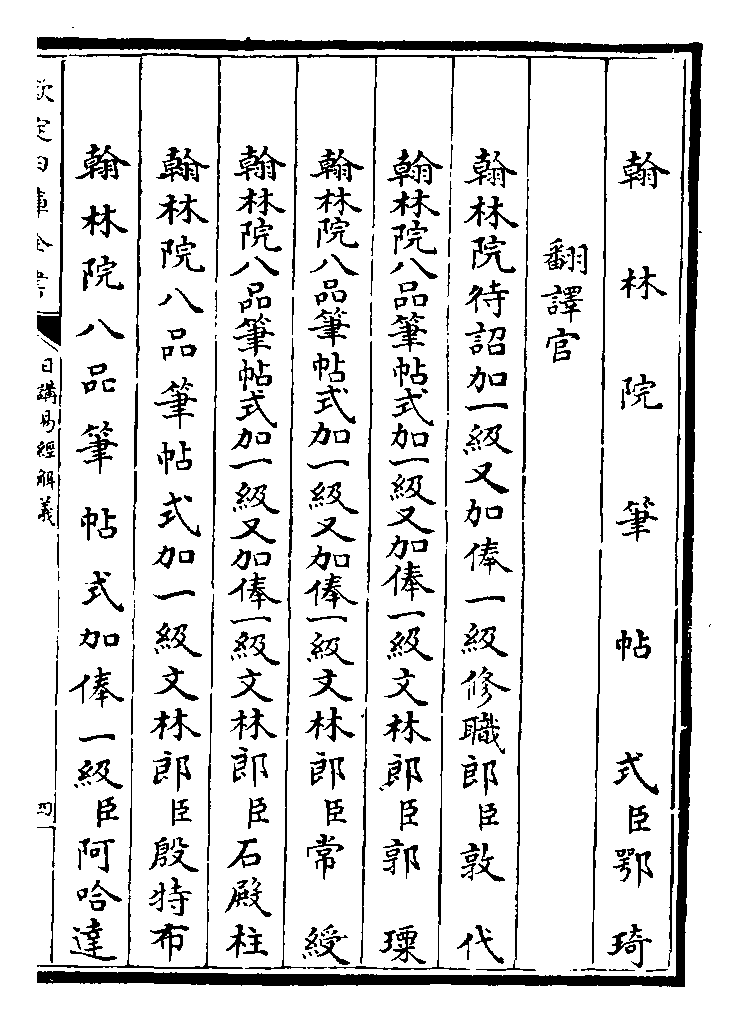 翰林院筆帖式臣鄂琦
翻譯官
翰林院待詔加一級又加俸一級修職郎臣敦代
翰林院八品筆帖式加一級又加俸一級文林郎臣郭瑮
翰林院八品筆帖式加一級又加俸一級文林郎臣常綬
翰林院八品筆帖式加一級又加俸一級文林郎臣石殿柱
翰林院八品筆帖式加一級文林郎臣殷特布
翰林院八品筆帖式加俸一級臣阿哈達
欽定四庫全書
日講易經解義
四